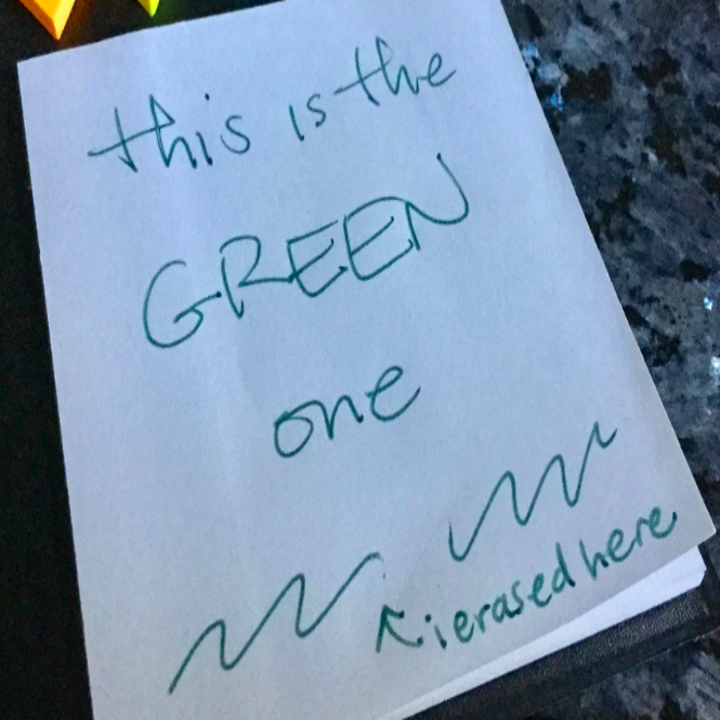 this is the
GREEN
one
i erased here